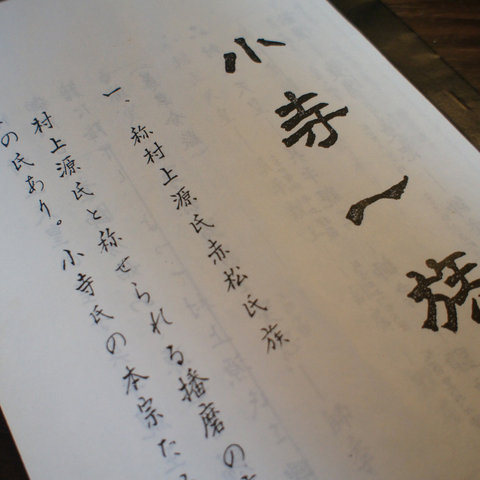 小寺一族
一、称村上源氏赤松氏族
村上源氏と称せられる播磨の
の氏あり。小寺氏の本宗た